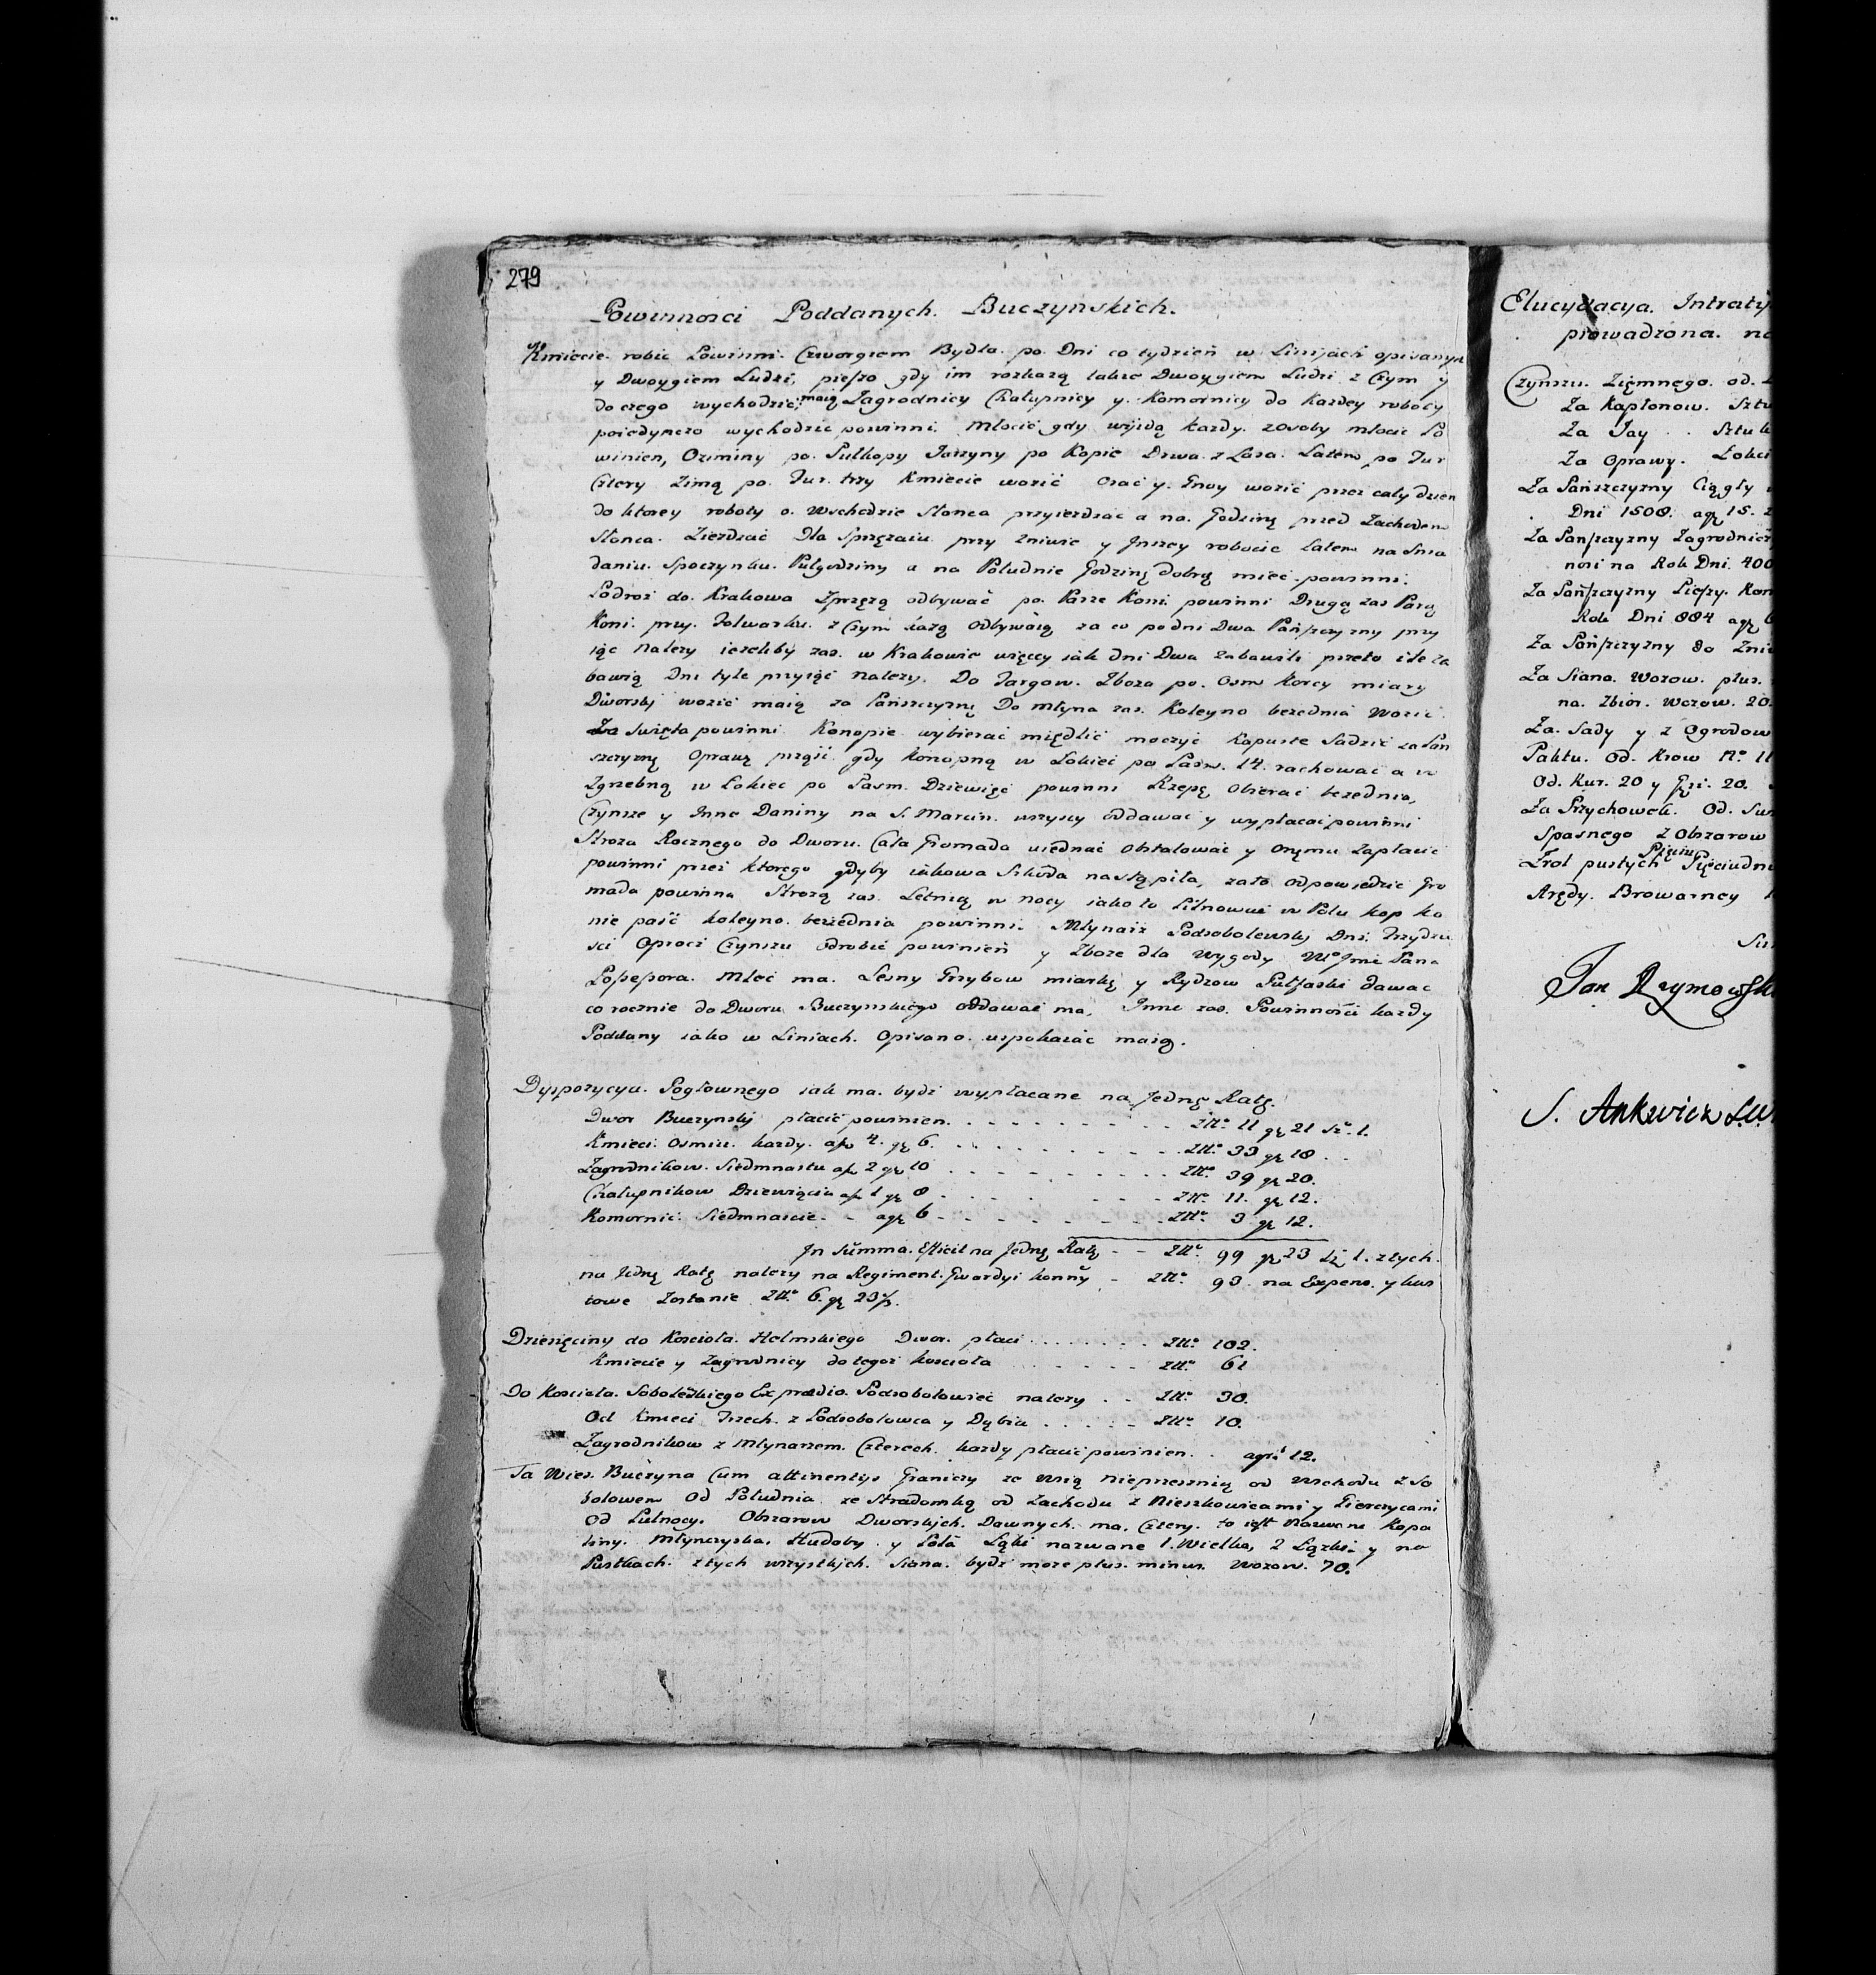 279
Powinnosci Poddanych. Buczynskich.
Kmiecie. robic Powinni. Czworgiem Bydła. po. Dni co tydzień w Linijach opisanych
y Dwoygiem Ludzi, pieszo gdy im rozkazą takze Dwoygiem Ludzi z Czym y
do czego wychodzić, maią Zagrodnicy Chałupnicy y. Komornicy do Kazdey roboty
poiedynczo wychodzic powinni. Młocić gdy wyidą kazdy. zosoby młocic Po
winien, Oziminy po. Pułkopy Jarzyny po Kopie Drwa. z Lasa. Latem po Fur
Cztery Zimą po. Fur. trzy Kmiecie wozić Orać y. Gnoy wozić przez cały dzien
do ktorey roboty o. Wschodzie Słonca przyiezdzac a na. Godzinę przed Zachodem
Słonca. Ziezdzać Dla Sprzęzaiu przy Zniwie y Jnszey robocie Latem na Snia
daniu. Spoczynku. Pułgodziny a na Południe Godzinę dobrą mieć. powinni.
Podroż do. Krakowa Zprzęzą odbywać po. Parze Koni. powinni Drugą zas Parą
Koni. przy. Folwarku. z Czym każą odbywaią za co po dni Dwa Pańszczyzny przy
iąc Nalezy iezeliby zas. w Krakowie więcey iak dni Dwa zabawili przeto ile za
bawią Dni tyle przyiąć Nalezy. Do Targow. Zboza po. Osm Korcy miary
Dworskiy wozić maią za Pańszczyznę Do Młyna zas. Koleyno bezednia Wozić.
Za Swięta powinni Konopie wybierać międlić moczyć Kapuste Sadzić za Pań
szczyznę Oprawę prząść gdy Konopną w Łokieć po Pasm. 14. rachować a w
Zgrzebną w Łokiec po Pasm. Dziewięć powinni Rzepę Obierać bezednia,
Czynsze y Inne Daniny na S. Marcin. wszyscy oddawać y wypłacać powinni
Stroza Rocznego do Dworu. Cała Gromada uiednać Obstalować y Onęmu zapłacić
powinni przez ktorego gdyby iakowa Szkoda nastąpiła, zato odpowiedzic Gro
mada powinna Strozą zas. Letnią w nocy iako to Pilnować w Polu kop ko
nie paść koleyno. bezednia powinni. Młynarz Podsobolewsky Dni. Trzydzie
sci Oprocz Czynszu Odrobić powinień y Zboze dla Wygody Wo Jmć Pana
Possessora. Mleć ma. Lesny Grzybow miarkę y Rydzow Pułfaski dawac
co rocznie do Dworu Buczynskiego oddawać ma, Inne zas. Powinności kazdy
Poddany iako w Liniach. Opisano. uspokaiać maią.
Dyspozycya. Pogłownego iak ma. bydz wypłacane na Jednę Ratę.
Dwor Buczynskij płacić powinien. Złło. 11 gr 21 sz. 1.
Kmieci. Osmiu. kazdy. a fl. 4. gr 6. Złło. 33 gr 18
Zagrodnikow. Siedmnastu a fl. 2 gr 10 Złło. 39 gr 20.
Chałupnikow Dziewięciu a fl. 1 gr 8 Złło. 11. gr 12.
Komornic. Siedmnascie. agr 6 Złło. 3 gr 12.
Jn Summa. Efficit na Jednę Ratę Złło. 99 gr 23 sz 1. ztych.
na Jednę Ratę nalezy na Regiment. Gwardyi konny Złło. 93. na Expens. y kwi
towe Zostanie Złło. 6. gr 23 ½.
Dziesięciny do Koscioła. Hełmskiego Dwor. płaci Złło. 102.
Kmiecie y Zagrodnicy do tegoż koscioła Złło. 61
Do Koscioła. Sobolewskiego Ex prædio. Podsobolowiec nalezy Złło. 30.
Od Kmieci Trzech. z Podsobolowca y Dębia Złło. 10.
Zagrodnikow z Młynarzem. Czterech. kazdy płacić powinien. agr. 12.
Ta Wies. Buczyna Cum attinentijs Graniczy ze Wsią Nieprzesnią od Wschodu z So
bolowem Od Południa ze Stradomką od Zachodu z Nieszkowicami y Gierczycami
Od Pułnocy. Obszarow Dworskich. Dawnych. ma. Cztery. to iest Nazwane Kopa
liny. Młynczyska. Hudoby y Pola Łąki nazwane 1. Wielka, 2 Łązki y na
Pustkach. z tych wszystkich. Siana. bydź moze plus. minus. Wozow. 70.
Elucydacya. Intraty
prowadzona.
Czynszu. Zięmnego. od.
Za Kapłonow. Sztu
Za Jay Sztuk
Za Oprawy. Łokci
Za Pańszczyzny Ciągły
Dni 1508. agr 15.
Za Pańszczyzny Zagrodnicz
nosi na Rok Dni. 400
Za Pańszczyzny Pieszy. Kom
Rok Dni 884 agr 6
Za Pańszczyzny do Zni
Za Siana. Wozow. plus.
na. Zbior. Wozow. 20.
Za. Sady y z Ogrodow
Paktu. Od. Krow No. 11
Od. Kur. 20 y Gęsi. 20.
Za Przychowek. Od. Swi
Spasnego z Obszarow
Zrol pustych Pięciu Pięciudni
Arędy. Browarney
Su
Jan Rzymowski
S. Ankwicz